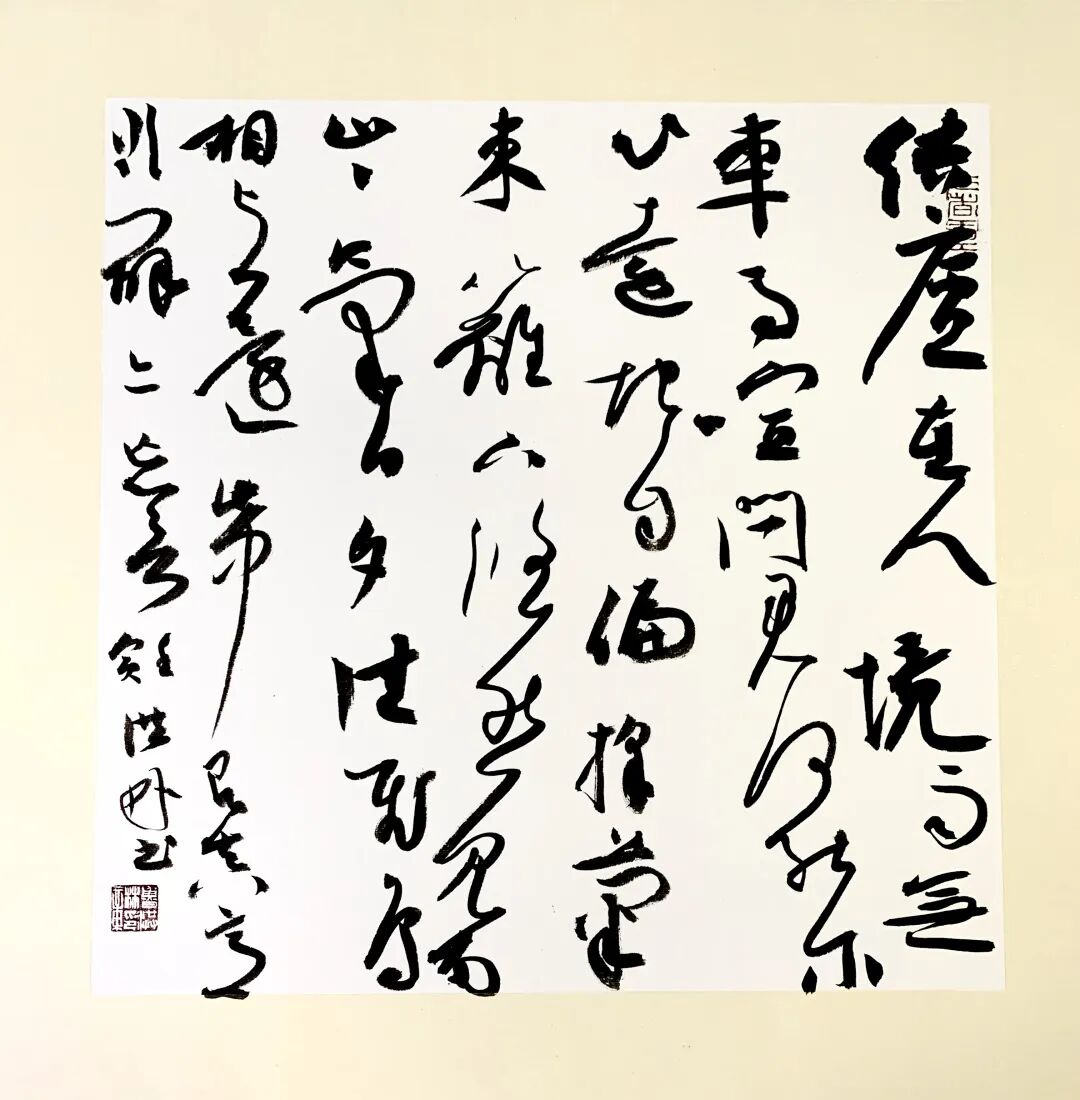 結廬在人境而無
車馬喧問君何能尔
心遠地自偏採菊
東籬下悠然見南
山氣日夕佳飛鳥
相与還此中有真意
欲辨已忘言 洪林书